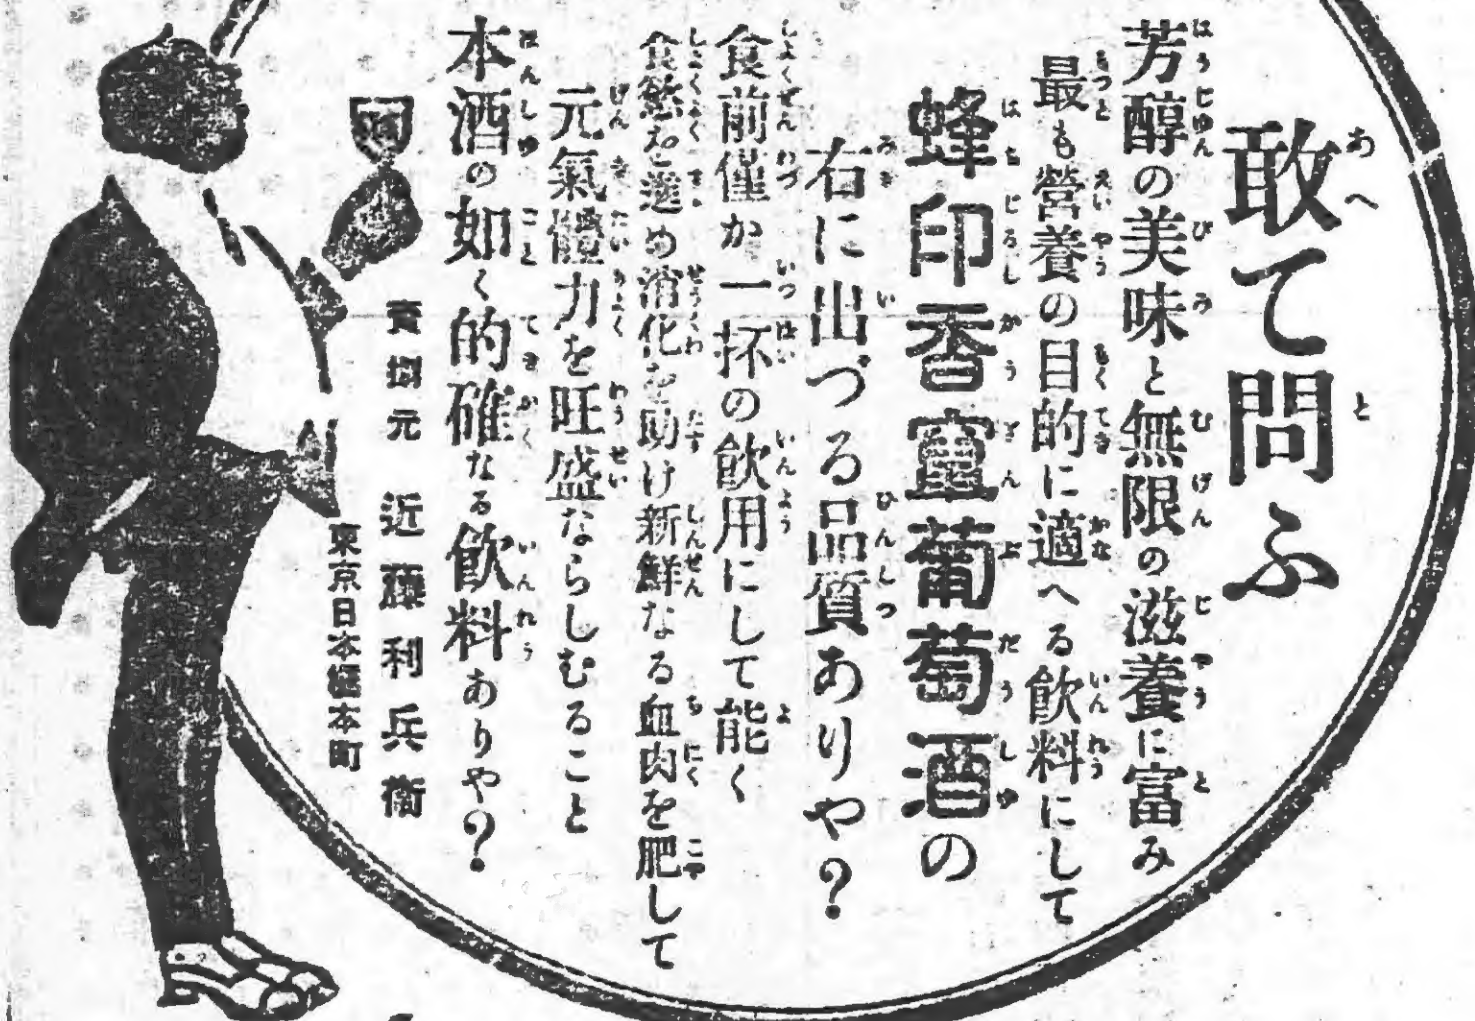 敢て問ふ
芳醇の美味と無限の滋養に富み
最も營養の目的に適へる飲料にして
蜂印香竄葡萄酒の
右に出づる品質ありや?
食前僅か一杯の飲用にして能く
食慾を進め消化を助け新鮮なる血肉を肥して
元氣體力を旺盛ならしむること
本酒の如く的確なる飲料ありや?
賣捌元 近藤利兵衞
東京日本橋區本町